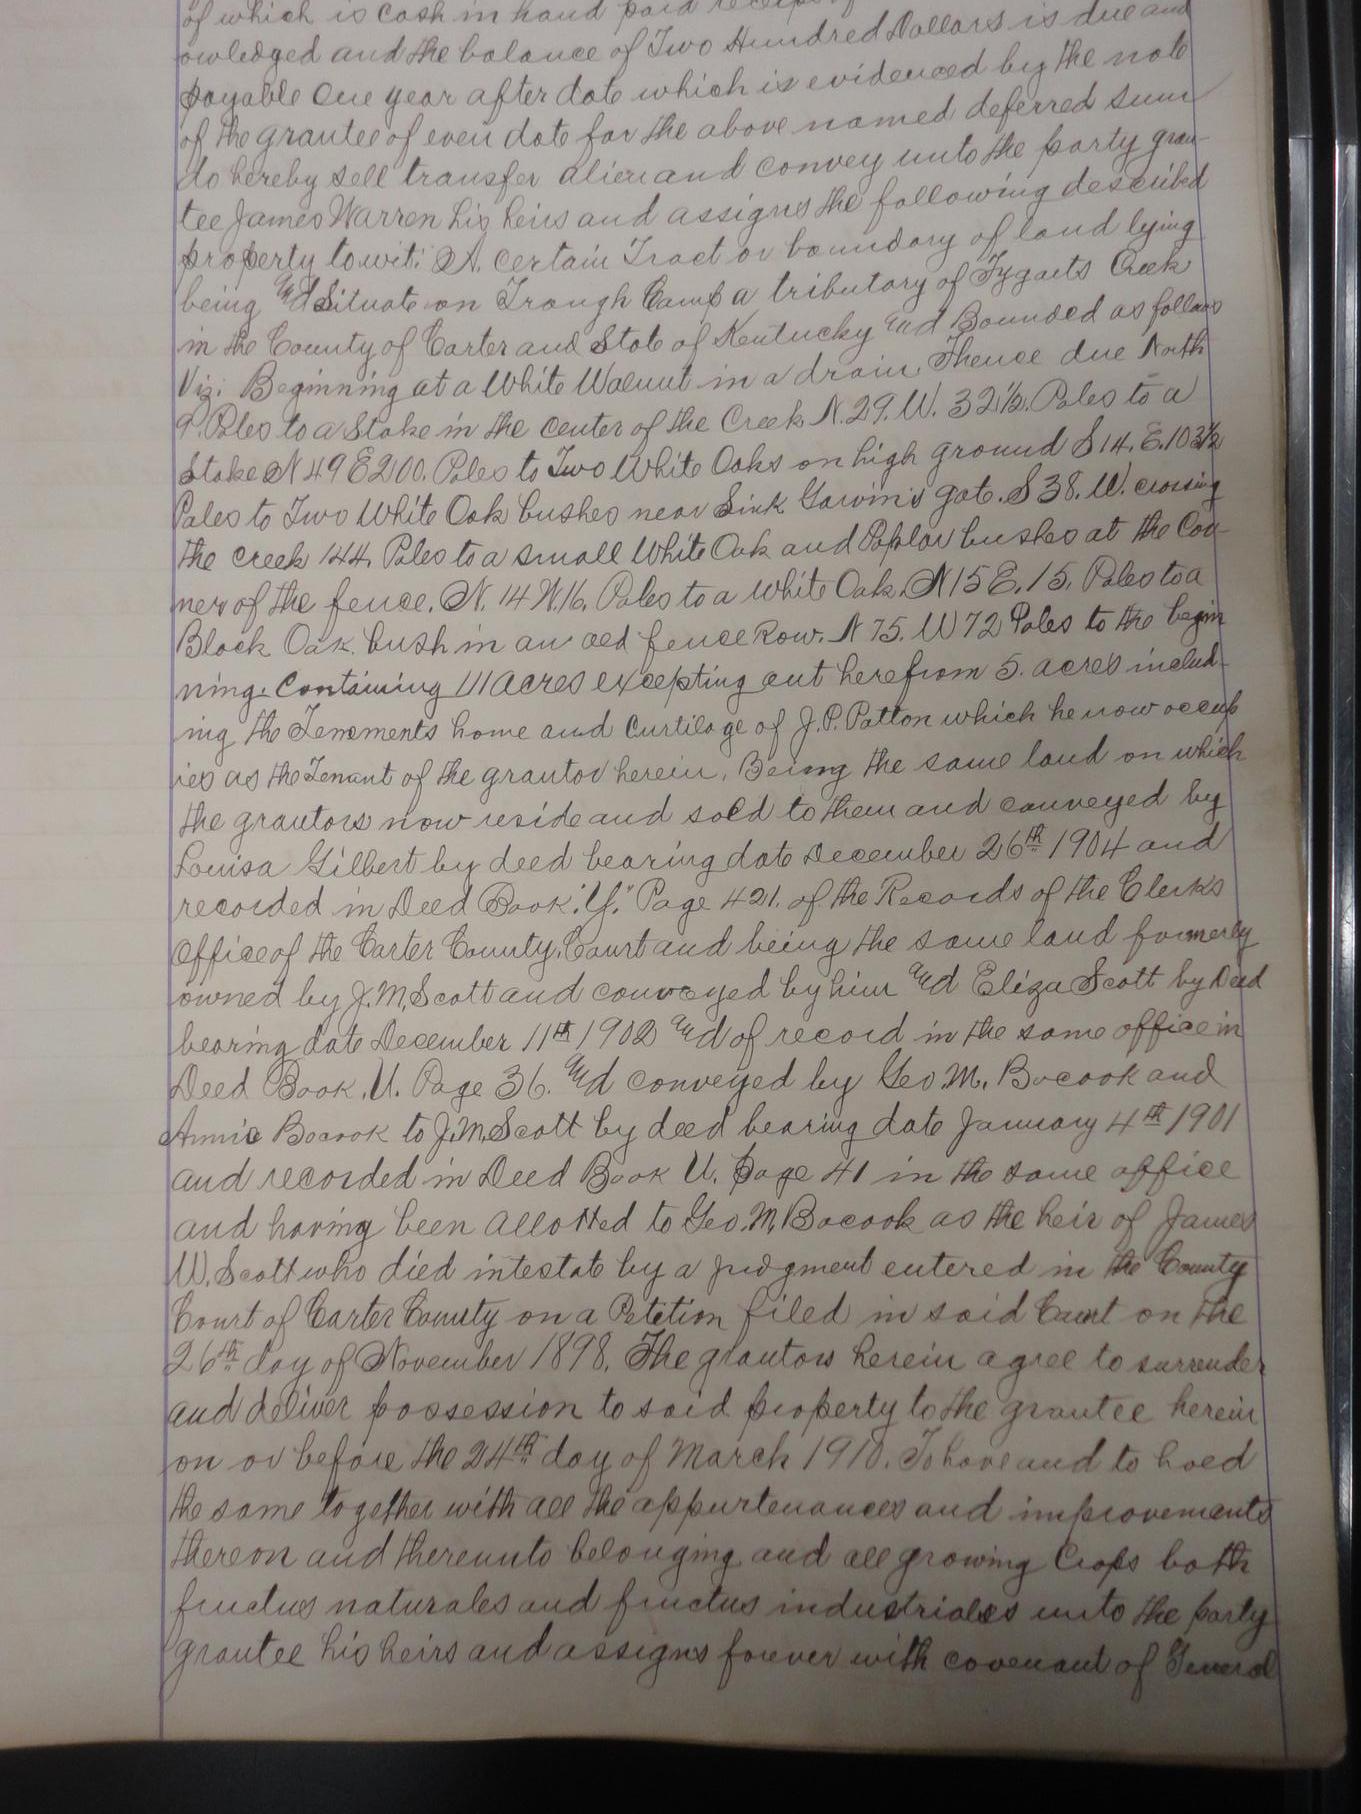 of which is cash in hand paid receipt of
owledged and the balance of Two Hundred Dollars is due and
payable One year after date which is evidenced by the note
of the grantee of even date for the above named deferred sum
do hereby sell transfer alien and convey unto the party gran-
tee James Warren his heirs and assigns the following described
property to wit: A. certain Tract or boundary of land lying
being and Situate on Trough Camp a tributary of Tygarts Creek
in the County of Carter and State of Kentucky and Bounded as follows
Viz: Beginning at a White Walnut in a drain. Thence due North
9. Poles to a Stake in the center of the Creek N. 29. W. 32½. Poles to a
Stake N 49 E 200. Poles to Two White Oaks on high ground S 14. E. 103½
Poles to Two White Oak bushes near Sink Garvin's gate. S 38. W. crossing
the creek 144. Poles to a small White Oak and Poplar bushes at the Cor-
ner of the fence. N. 14 W. 16. Poles to a White Oak. N 15 E. 15. Poles to a
Black Oak. bush in an old fence Row. N 75. W 72 Poles to the begin
ning. Containing 111 acres excepting out herefrom 5. acres includ-
ing the Tenements home and Curtilage of J. P. Patton which he now occup
ies as the Tenant of the grantor herein. Being the same land on which
the grantors now reside and sold to them and conveyed by
Louisa Gilbert by deed bearing date December 26th 1904 and
recorded in Deed Book "Y." Page 421. of the Records of the Clerks
Office of the Carter County Court and being the same land formerly
owned by J. M. Scott and conveyed by him and Eliza Scott by Deed
bearing date December 11th 1902 and of record in the same office in
Deed Book. U. Page 36. and conveyed by Geo. M. Bocook and
Annie Bocook to J. M. Scott by deed bearing date January 4th 1901
and recorded in Deed Book U. Page 41 in the same office
and having been allotted to Geo. M. Bocook as the heir of James
W. Scott who died intestate by a judgment entered in the County
Court of Carter County on a Petition filed in said Court on the
26th day of November 1898. The grantors herein agree to surrender
and deliver possession to said property to the grantee herein
on or before the 24th day of March 1910. To have and to hold
the same together with all the appurtenances and improvements
thereon and thereunto belonging and all growing Crops both
fructus naturales and fructus industriales unto the party
grantee his heirs and assigns forever with covenant of General